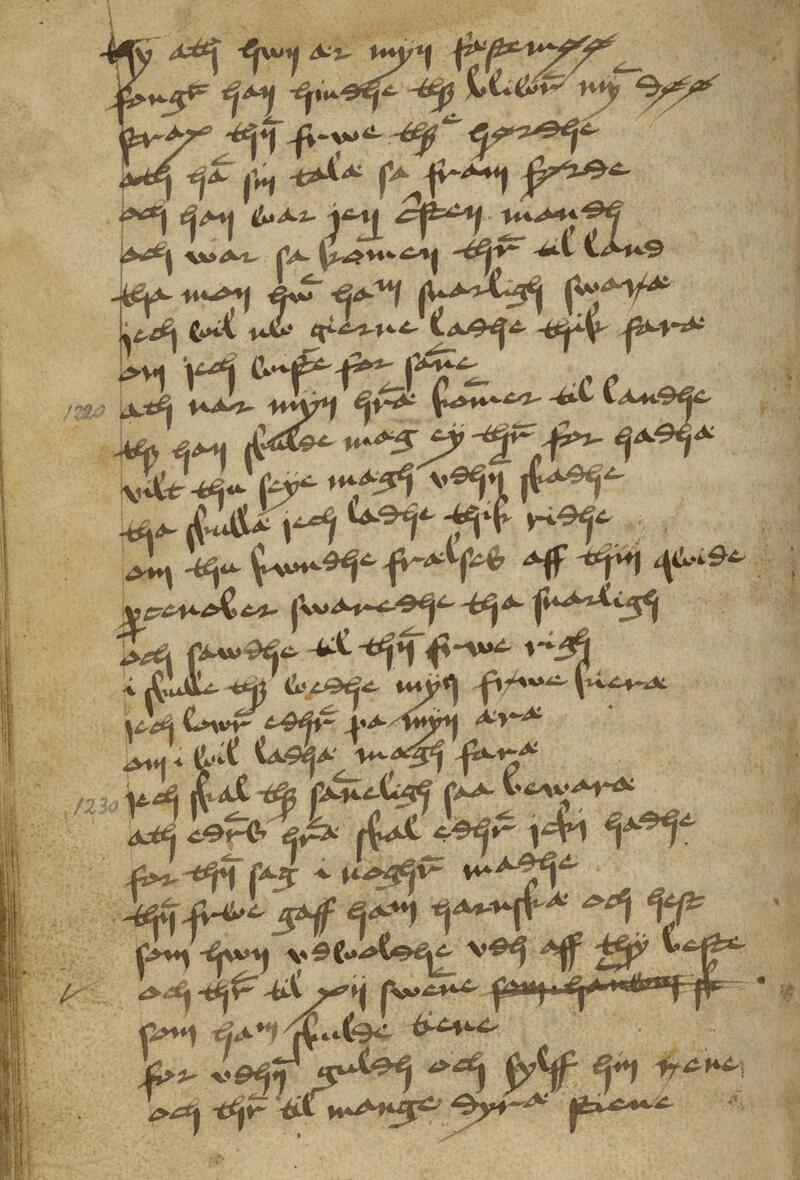 thy ath hwn ær myn fæstemøø
fongr̄ han hindhe thꝫ bliwr̄ myn̄ døø
strax thn̄ frwe thꝫ hørdhe
ath hā sin talæ sa fram førde
och han war jen c̄sten mandh
och war sa komen thr̄ til land
tha mon hwn̄ ham snarligh swaræ
jech wil nw gierne ladhe thik faræ
om jech wiste for san̄e
1220 ath nar myn hr̄æ kōmer til landhe
thꝫ han skulde mæg ey thr̄ for hadhæ
vilt thu seye mægh vdhn̄ skadhe
tha skullæ jech ladhe thik ridhe
om thu kwndhe frælses aff thin qwide
ꝑcenober swaredhe tha snarligh
och sawdhe til thn̄ frwe righ
i skulle thꝫ wedhe myn frwe kieræ
jech lowr̄ edhr̄ pa myn æræ
om i wil ladhæ mægh faræ
1230 jech skal thꝫ san̄eligh saa bewaræ
ath edr̄s hr̄æ skal edhr̄ jcki hadhe
for thn̄ sag i noghr̄ madhe
thn̄ frwe gaff ham harnskæ och hest
som hwn vdwoldhe vdh aff thy beste
och thr̄ til xij swēne som han
som ham skulde tiene
for vdhn̄ guldh och sylff hin rene
och thr̄ til mange dyræ stene